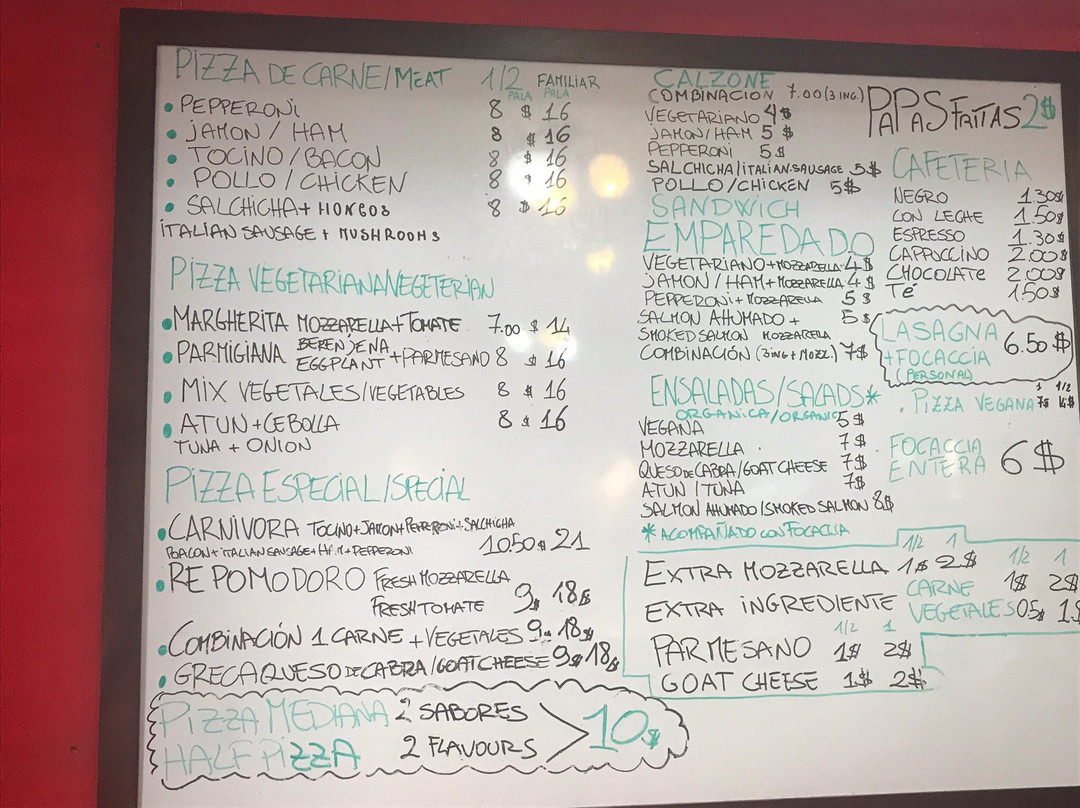 PIZZA DE CARNE/MEAT 1/2 PALA FAMILIAR PALA
• PEPPERONI 8 $ 16
• JAMON / HAM 8 $ 16
• TOCINO / BACON 8 $ 16
• POLLO / CHICKEN 8 $ 16
• SALCHICHA + HONGOS 8 $ 16
ITALIAN SAUSAGE + MUSHROOMS
PIZZA VEGETARIANA/VEGETERIAN
• MARGHERITA MOZZARELLA + TOMATE 7.00 $ 14
• PARMIGIANA BERENJENA
EGGPLANT + PARMESANO 8 $ 16
• MIX VEGETALES/VEGETABLES 8 $ 16
• ATUN + CEBOLLA 8 $ 16
TUNA + ONION
PIZZA ESPECIAL/SPECIAL
• CARNIVORA TOCINO + JAMON + PEPPERONI + SALCHICHA
BACON + ITALIAN SAUSAGE + HAM + PEPPERONI 10.50 $ 21
• RE POMODORO FRESH MOZZARELLA
FRESH TOMATE 9$ 18$
• COMBINACIÓN 1 CARNE + VEGETALES 9$ 18$
• GRECA QUESO DE CABRA/GOAT CHEESE 9$ 18$
PIZZA MEDIANA 2 SABORES
HALF PIZZA 2 FLAVOURS > 10$
CALZONE
COMBINACION 7.00 (3 ING.)
VEGETARIANO 4$
JAMON/HAM 5 $
PEPPERONI 5 $
SALCHICHA/ITALIAN SAUSAGE 5$
POLLO/CHICKEN 5$
SANDWICH
EMPAREDADO
VEGETARIANO + MOZZARELLA 4$
JAMON/HAM + MOZZARELLA 4$
PEPPERONI + MOZZARELLA 5 $
SALMON AHUMADO + 5$
SMOKED SALMON MOZZARELLA
COMBINACIÓN (3 ING + MOZZ.) 7$
ENSALADAS/SALADS*
ORGANICA/ORGANIC
VEGANA 5$
MOZZARELLA 7$
QUESO DE CABRA/GOAT CHEESE 7$
ATUN / TUNA 7$
SALMON AHUMADO/SMOKED SALMON 8$
* ACOMPAÑADO CON FOCACCIA
PAPAS FRITAS 2$
CAFETERIA
NEGRO 1.30$
CON LECHE 1.50$
ESPRESSO 1.30$
CAPPUCCINO 2.00$
CHOCOLATE 2.00$
TÉ 1.50$
LASAGNA
+ FOCACCIA 6.50 $
(PERSONAL)
1/2
• PIZZA VEGANA 7$
FOCACCIA
ENTERA 6$
1/2 1
EXTRA MOZZARELLA 1$ 2$
1/2 1
EXTRA INGREDIENTE CARNE 1$ 2$
VEGETALES 05$ 1$
1/2 1
PARMESANO 1$ 2$
GOAT CHEESE 1$ 2$